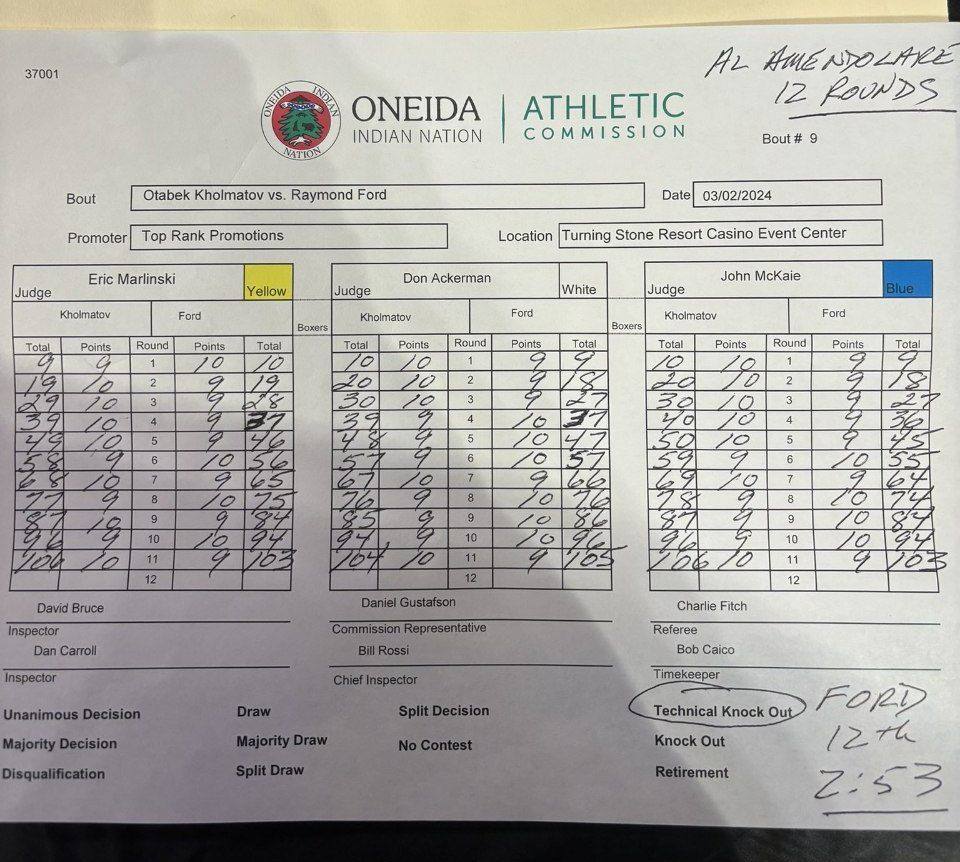 37001
AL AMENDOLARE
12 ROUNDS
ONEIDA INDIAN NATION
ONEIDA INDIAN NATION | ATHLETIC COMMISSION
Bout # 9
Bout Otabek Kholmatov vs. Raymond Ford Date 03/02/2024
Promoter Top Rank Promotions Location Turning Stone Resort Casino Event Center
Judge Eric Marlinski Yellow Judge Don Ackerman White Judge John McKaie Blue
Kholmatov Ford Boxers Kholmatov Ford Boxers Kholmatov Ford
Total Points Round Points Total Total Points Round Points Total Total Points Round Points Total
9 9 1 10 10 10 10 1 9 9 10 10 1 9 9
19 10 2 9 19 20 10 2 9 18 20 10 2 9 18
29 10 3 9 28 30 10 3 9 27 30 10 3 9 27
39 10 4 9 37 39 9 4 10 37 40 10 4 9 36
49 10 5 9 46 48 9 5 10 47 50 10 5 9 45
58 9 6 10 56 57 9 6 10 57 59 9 6 10 55
68 10 7 9 65 67 10 7 9 66 69 10 7 9 64
77 9 8 10 75 76 9 8 10 76 78 9 8 10 74
87 10 9 9 84 85 9 9 10 86 87 9 9 10 84
96 9 10 10 94 94 9 10 10 96 96 9 10 10 94
106 10 11 9 103 104 10 11 9 105 106 10 11 9 103
12 12 12
David Bruce Daniel Gustafson Charlie Fitch
Inspector Commission Representative Referee
Dan Carroll Bill Rossi Bob Caico
Inspector Chief Inspector Timekeeper
Unanimous Decision Draw Split Decision Technical Knock Out FORD
Majority Decision Majority Draw No Contest Knock Out 12th
Disqualification Split Draw Retirement 2:53